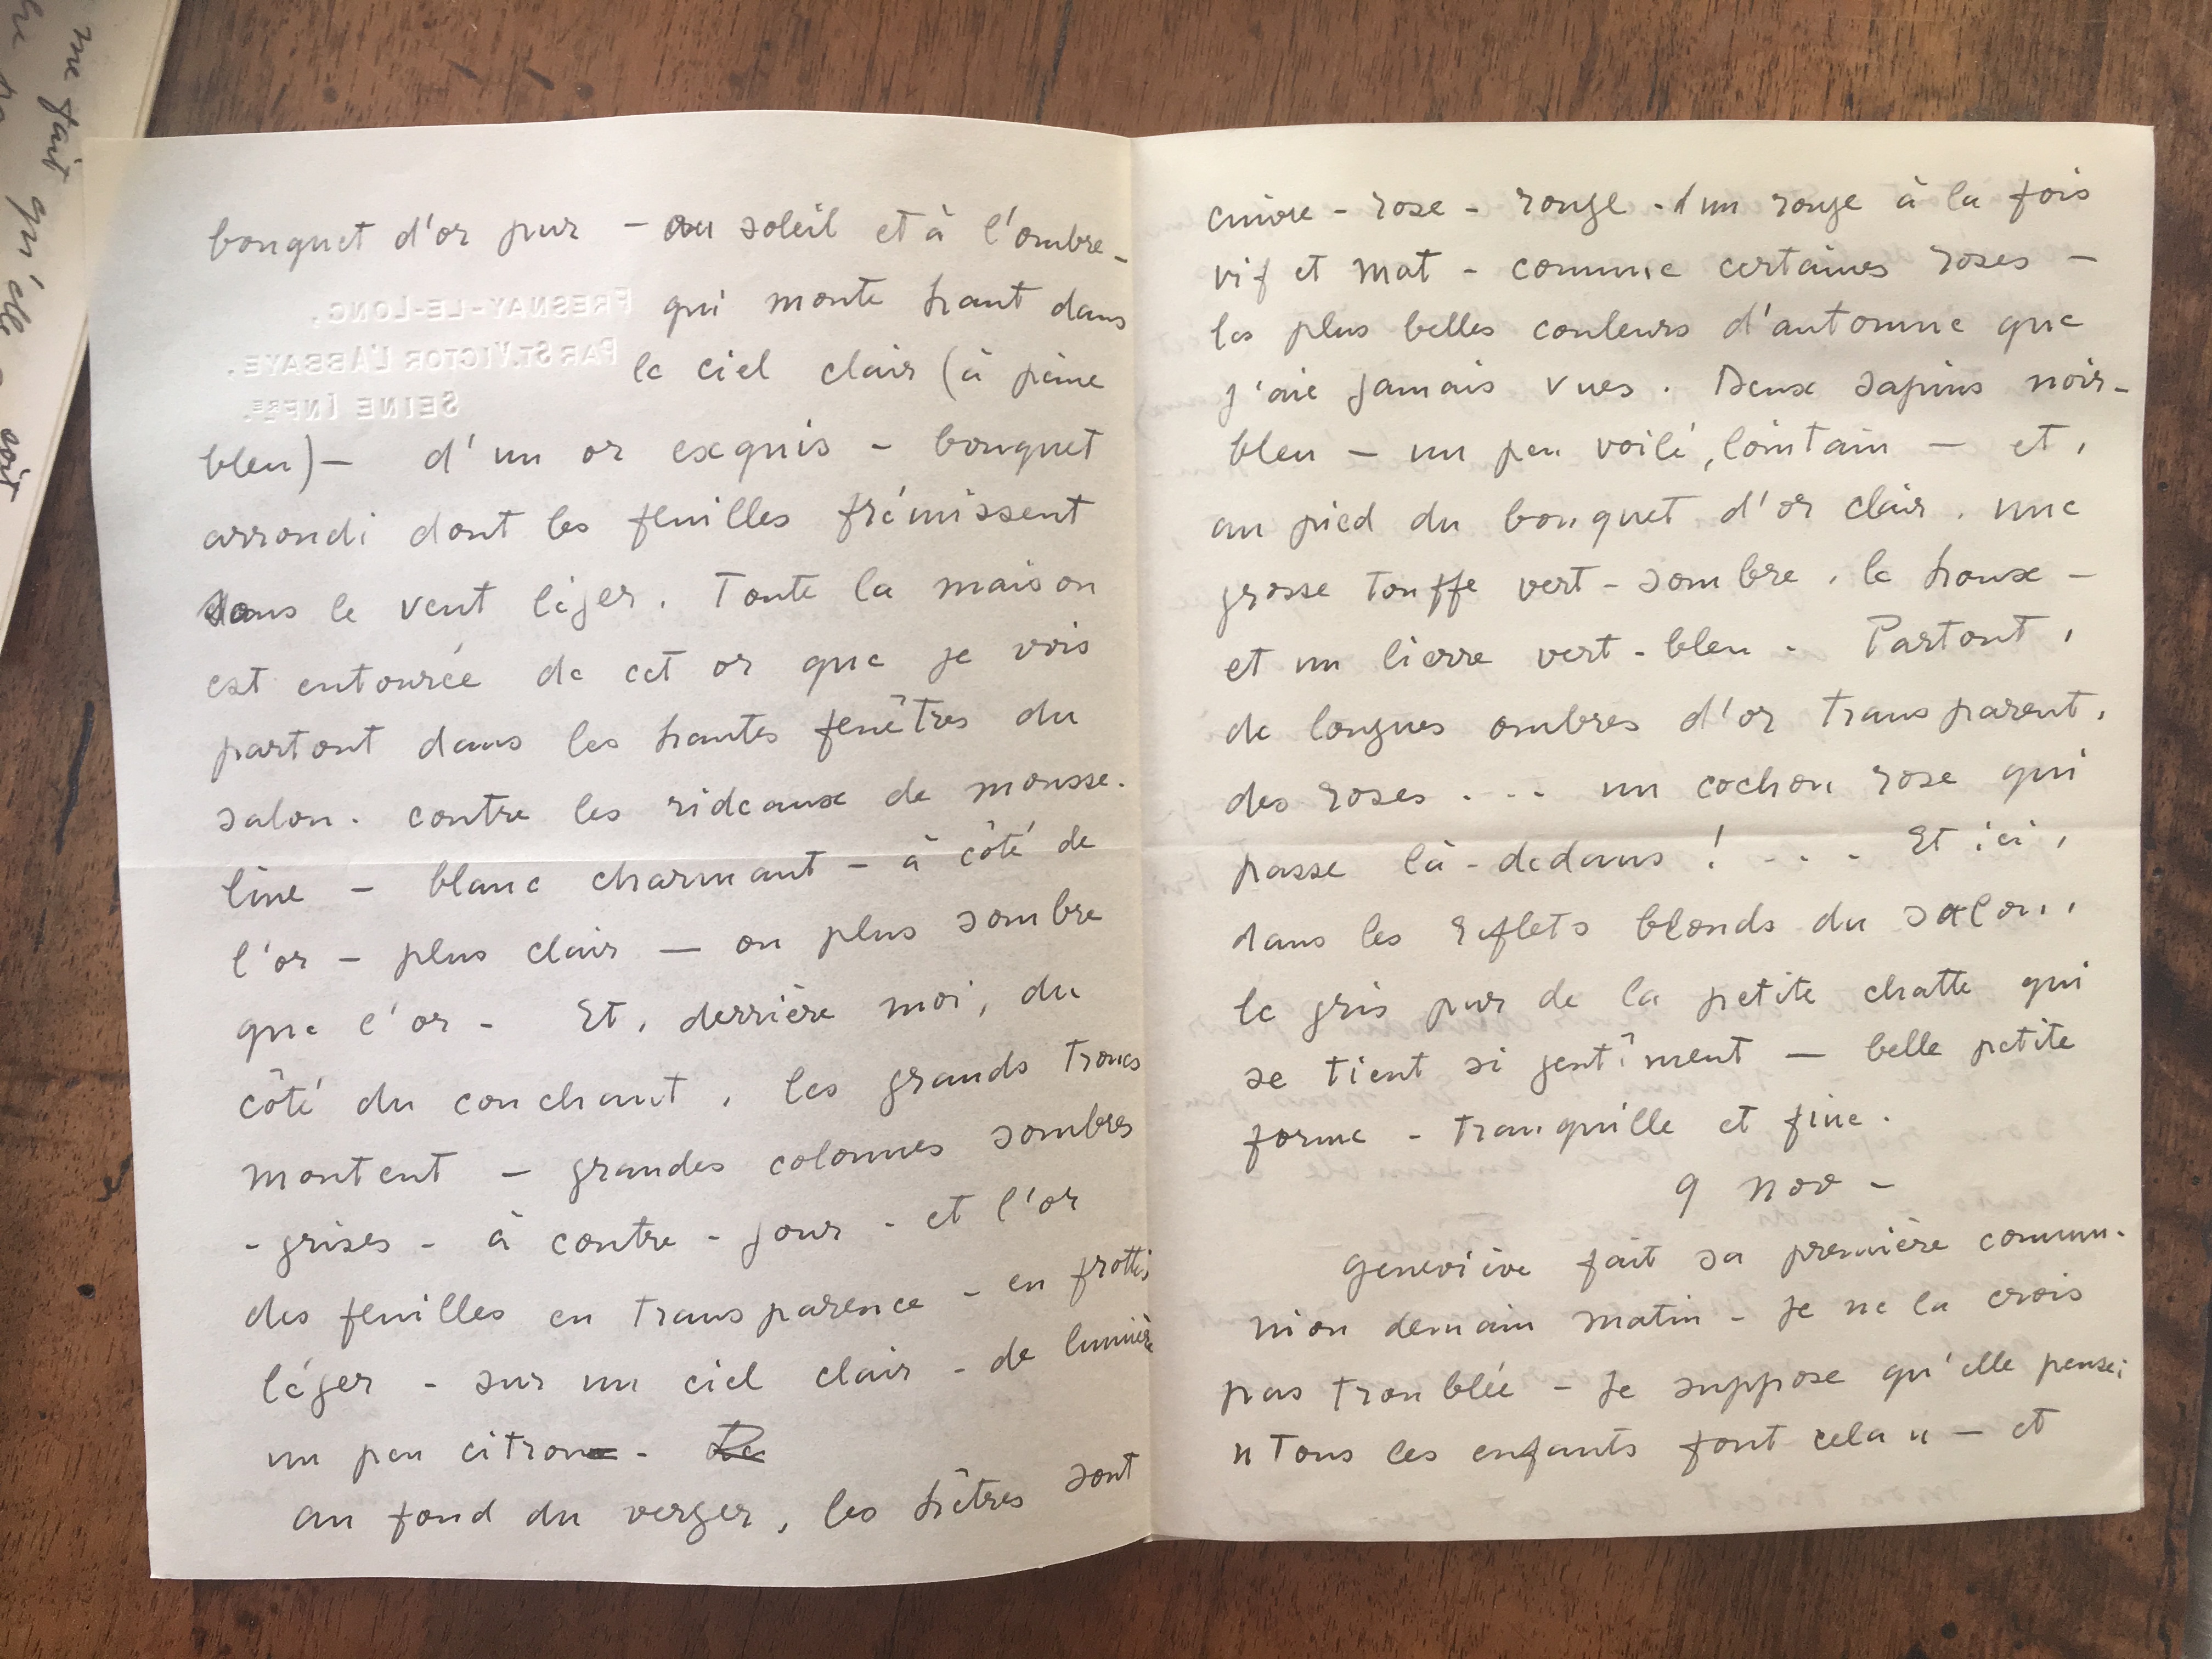 me fait
qu'elle
soit
bouquet d'or pur – au soleil et à l'ombre –
FRESNAY-LE-LONG,
PAR ST. VICTOR L'ABBAYE.
SEINE INFRE.
qui monte haut dans
le ciel clair (à peine
bleu) – d'un or exquis – bouquet
arrondi dont les feuilles frémissent
dans le vent léger. Toute la maison
est entourée de cet or que je vois
partout dans les hautes fenêtres du
salon. contre les rideaux de mousse-
line – blanc charmant – à côté de
l'or – plus clair – ou plus sombre
que l'or – Et, derrière moi, du
côté du couchant, les grands troncs
montent – grandes colonnes sombres
– grises – à contre-jour – et l'or
des feuilles en transparence – en frottis
léger – sur un ciel clair – de lumière
un peu citron – Le
au fond du verger, les hêtres sont
cuivre – rose – rouge – d'un rouge à la fois
vif et mat – comme certaines roses –
les plus belles couleurs d'automne que
j'aie jamais vues. Deux sapins noir-
bleu – un peu voilé, lointain – et,
au pied du bouquet d'or clair, une
grosse touffe vert-sombre, le houx –
et un lierre vert-bleu – Partout,
de longues ombres d'or transparent,
des roses . . . un cochon rose qui
passe là-dedans ! . . . Et ici,
dans les reflets blonds du salon,
le gris pur de la petite chatte qui
se tient si gentîment – belle petite
forme – tranquille et fine.
9 nov –
Geneviève fait sa première commu-
nion demain matin – Je ne la crois
pas troublée – Je suppose qu'elle pense:
"Tous les enfants font cela" – et